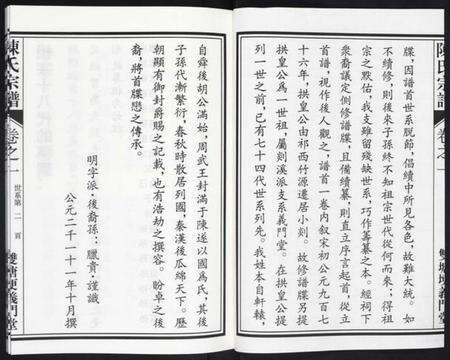 陳氏宗譜
卷之一
牒，因譜首世系脱節，倡續中所見各色，故難大統。如
不續修，則後來子孫終不知祖宗世代從何而來；得祖
宗之默佑，我支雖留殘缺世系，巧作籌纂之本。經祠下
衆裔議定側修譜牒，且備續纂，則直立序言起首，從立
首譜，視作後人觀之，譜首一卷內叙宋初公元九百七
十六年，拱皇公由祁西竹源遷居小刻。故修譜牒另提
拱皇公爲一世祖，屬剡溪派支系義門堂。在拱皇公提
列一世之前，已有七十四代世系列先。我姓本自軒轅，
自舜後胡公滿始，周武王封滿于陳遂以國爲氏，其後
子孫代漸繁衍，春秋時散居列國，秦漢後瓜綿天下。歷
朝顯有御封爵賜之記載，也有浩劫之撰容。盼卓之後
裔，將首牒戀之傳承。
明字派·後裔孫：臘貴·謹識
公元二千一十一年十月撰
陳氏宗譜
卷之一
世系第 二 頁
義門堂